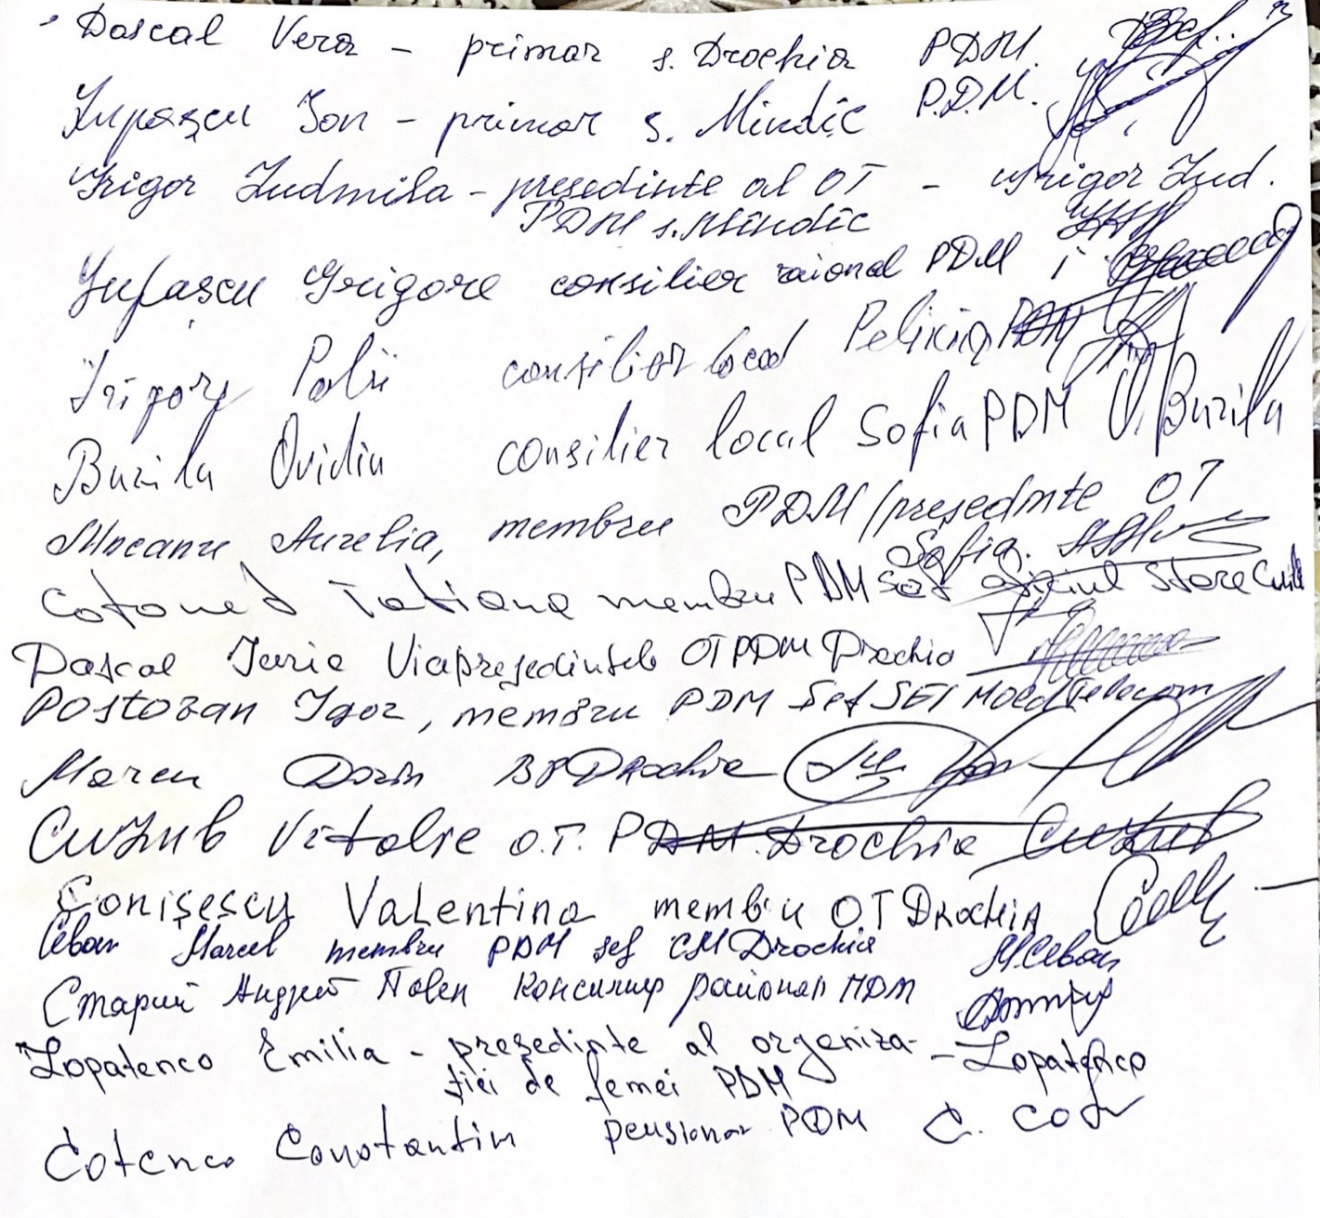 Dascal Vera - primar s. Drochia PDM.
Lupașcu Ion - primar s. Mîndîc P.D.M.
Grigor Ludmila - președinte al OT - Grigor Lud.
PDM s. Mîndîc
Lupașcu Grigore consilier raional PDM
Grigore Palii consilier local Pelinia PDM
Burila Ovidiu consilier local Sofia PDM O. Burila
Mocanu Aurelia, membru PDM/președinte OT
Sofia.
Tatiana membru PDM șef oficiul Stare Civilă
Dascal Iurie Viceprești̦edintele OT PDM Drochia
Postoran Igor, membru PDM șef SET Moldtelecom
Marcu Dorin BP Drochia
Vitalie O.T. PDM. Drochia
Conișescu Valentina membru OT Drochia
Ceban Marcel membru PDM șef CM Drochia MCeban
Старий Андрей Павел Консилиер районал ПДМ
Lopatenco Emilia - președinte al organiza- - Lopatenco
ției de femei PDM
Cotenco Constantin pensionar PDM C. Cot